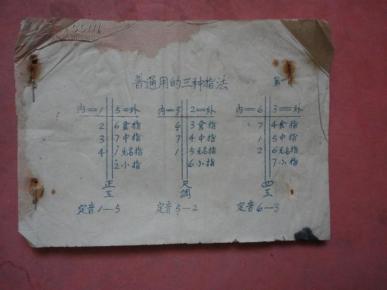 普通用的三种指法
第一
内 1 5 外 内 5 2 外 内 6 3 外
2 6 食指 6 3 食指 7 4 食指
3 7 中指 7 4 中指 1 5 中指
4 1 无名指 1 5 无名指 2 6 无名指
2 小指 6 小指 7 小指
正工 尺调 四工
定音 1—5 定音 5—2 定音 6—3